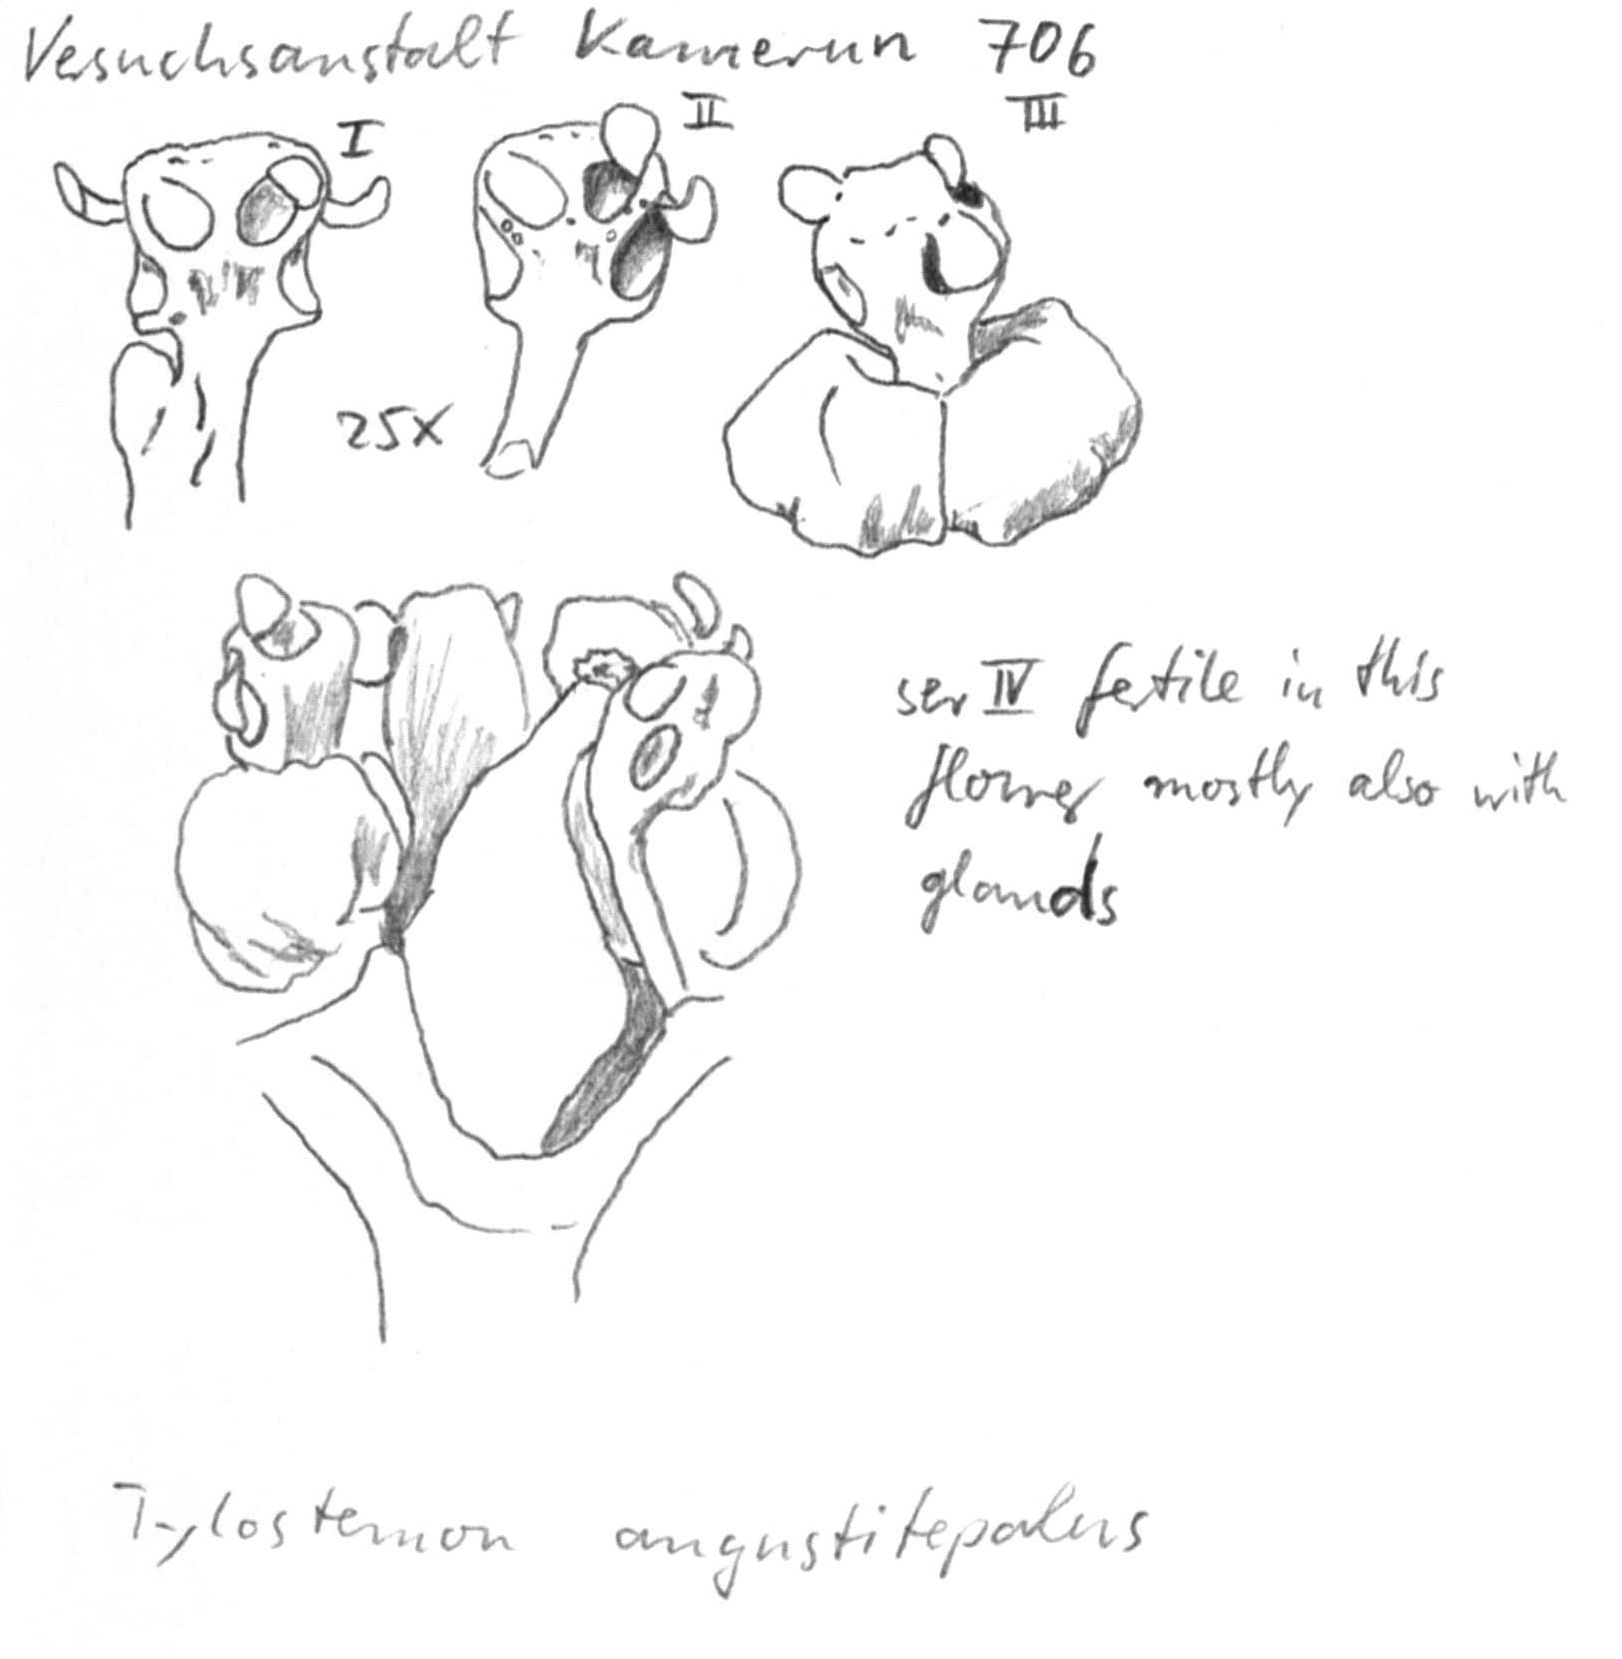 Vesuchsanstalt Kamerun 706
I
II
III
25x
ser IV fertile in this
flower mostly also with
glands
Tylostemon angustitepalus